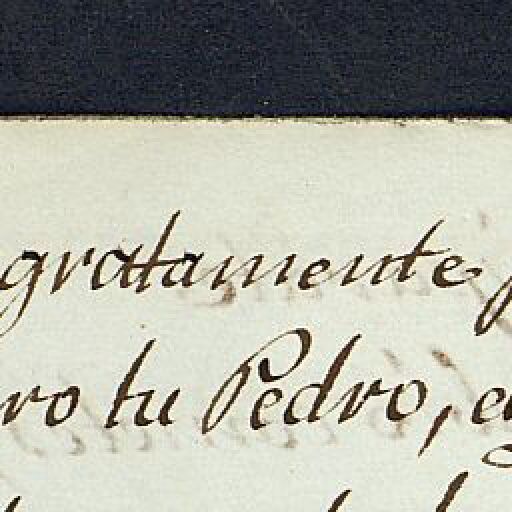 gratamente
ro tu Pedro, e